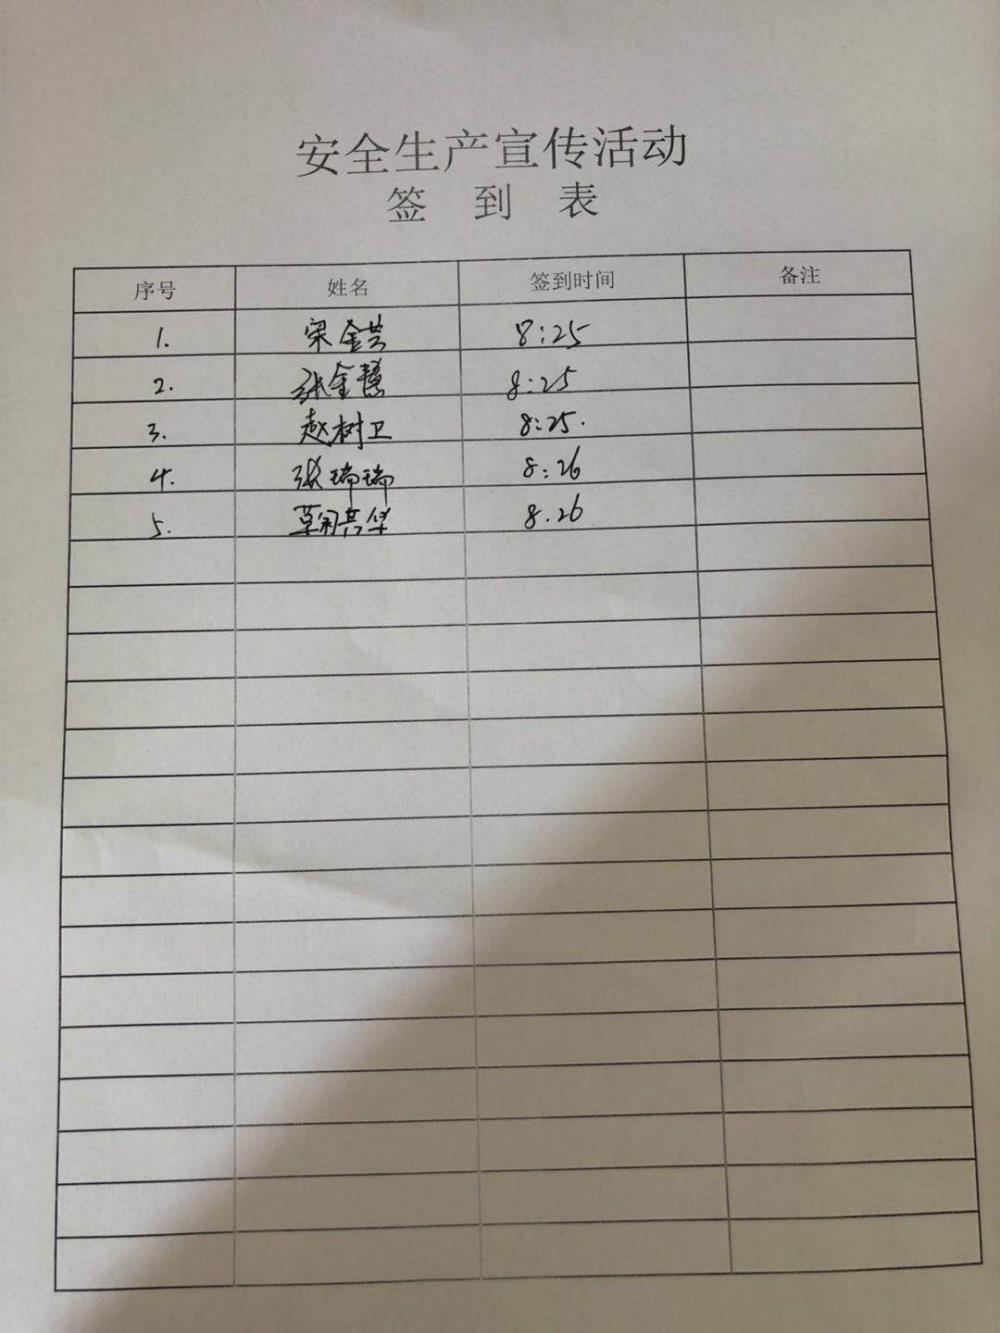 安全生产宣传活动
签 到 表
序号 姓名 签到时间 备注
1. 宋金芸 8:25
2. 张金慧 8:25
3. 赵树卫 8:25.
4. 张瑞瑞 8:26
5. 8.26